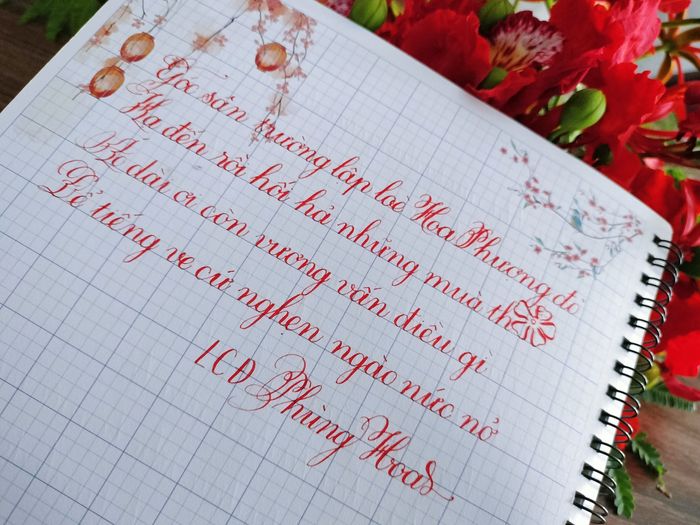 Góc sân trường lập lòe Hoa Phượng đỏ
Hạ đến rồi hối hả những mùa th
Hè dài ơi còn vương vấn điều gì
Để tiếng ve cứ nghẹn ngào nức nở
LCĐ Phùng Hoa